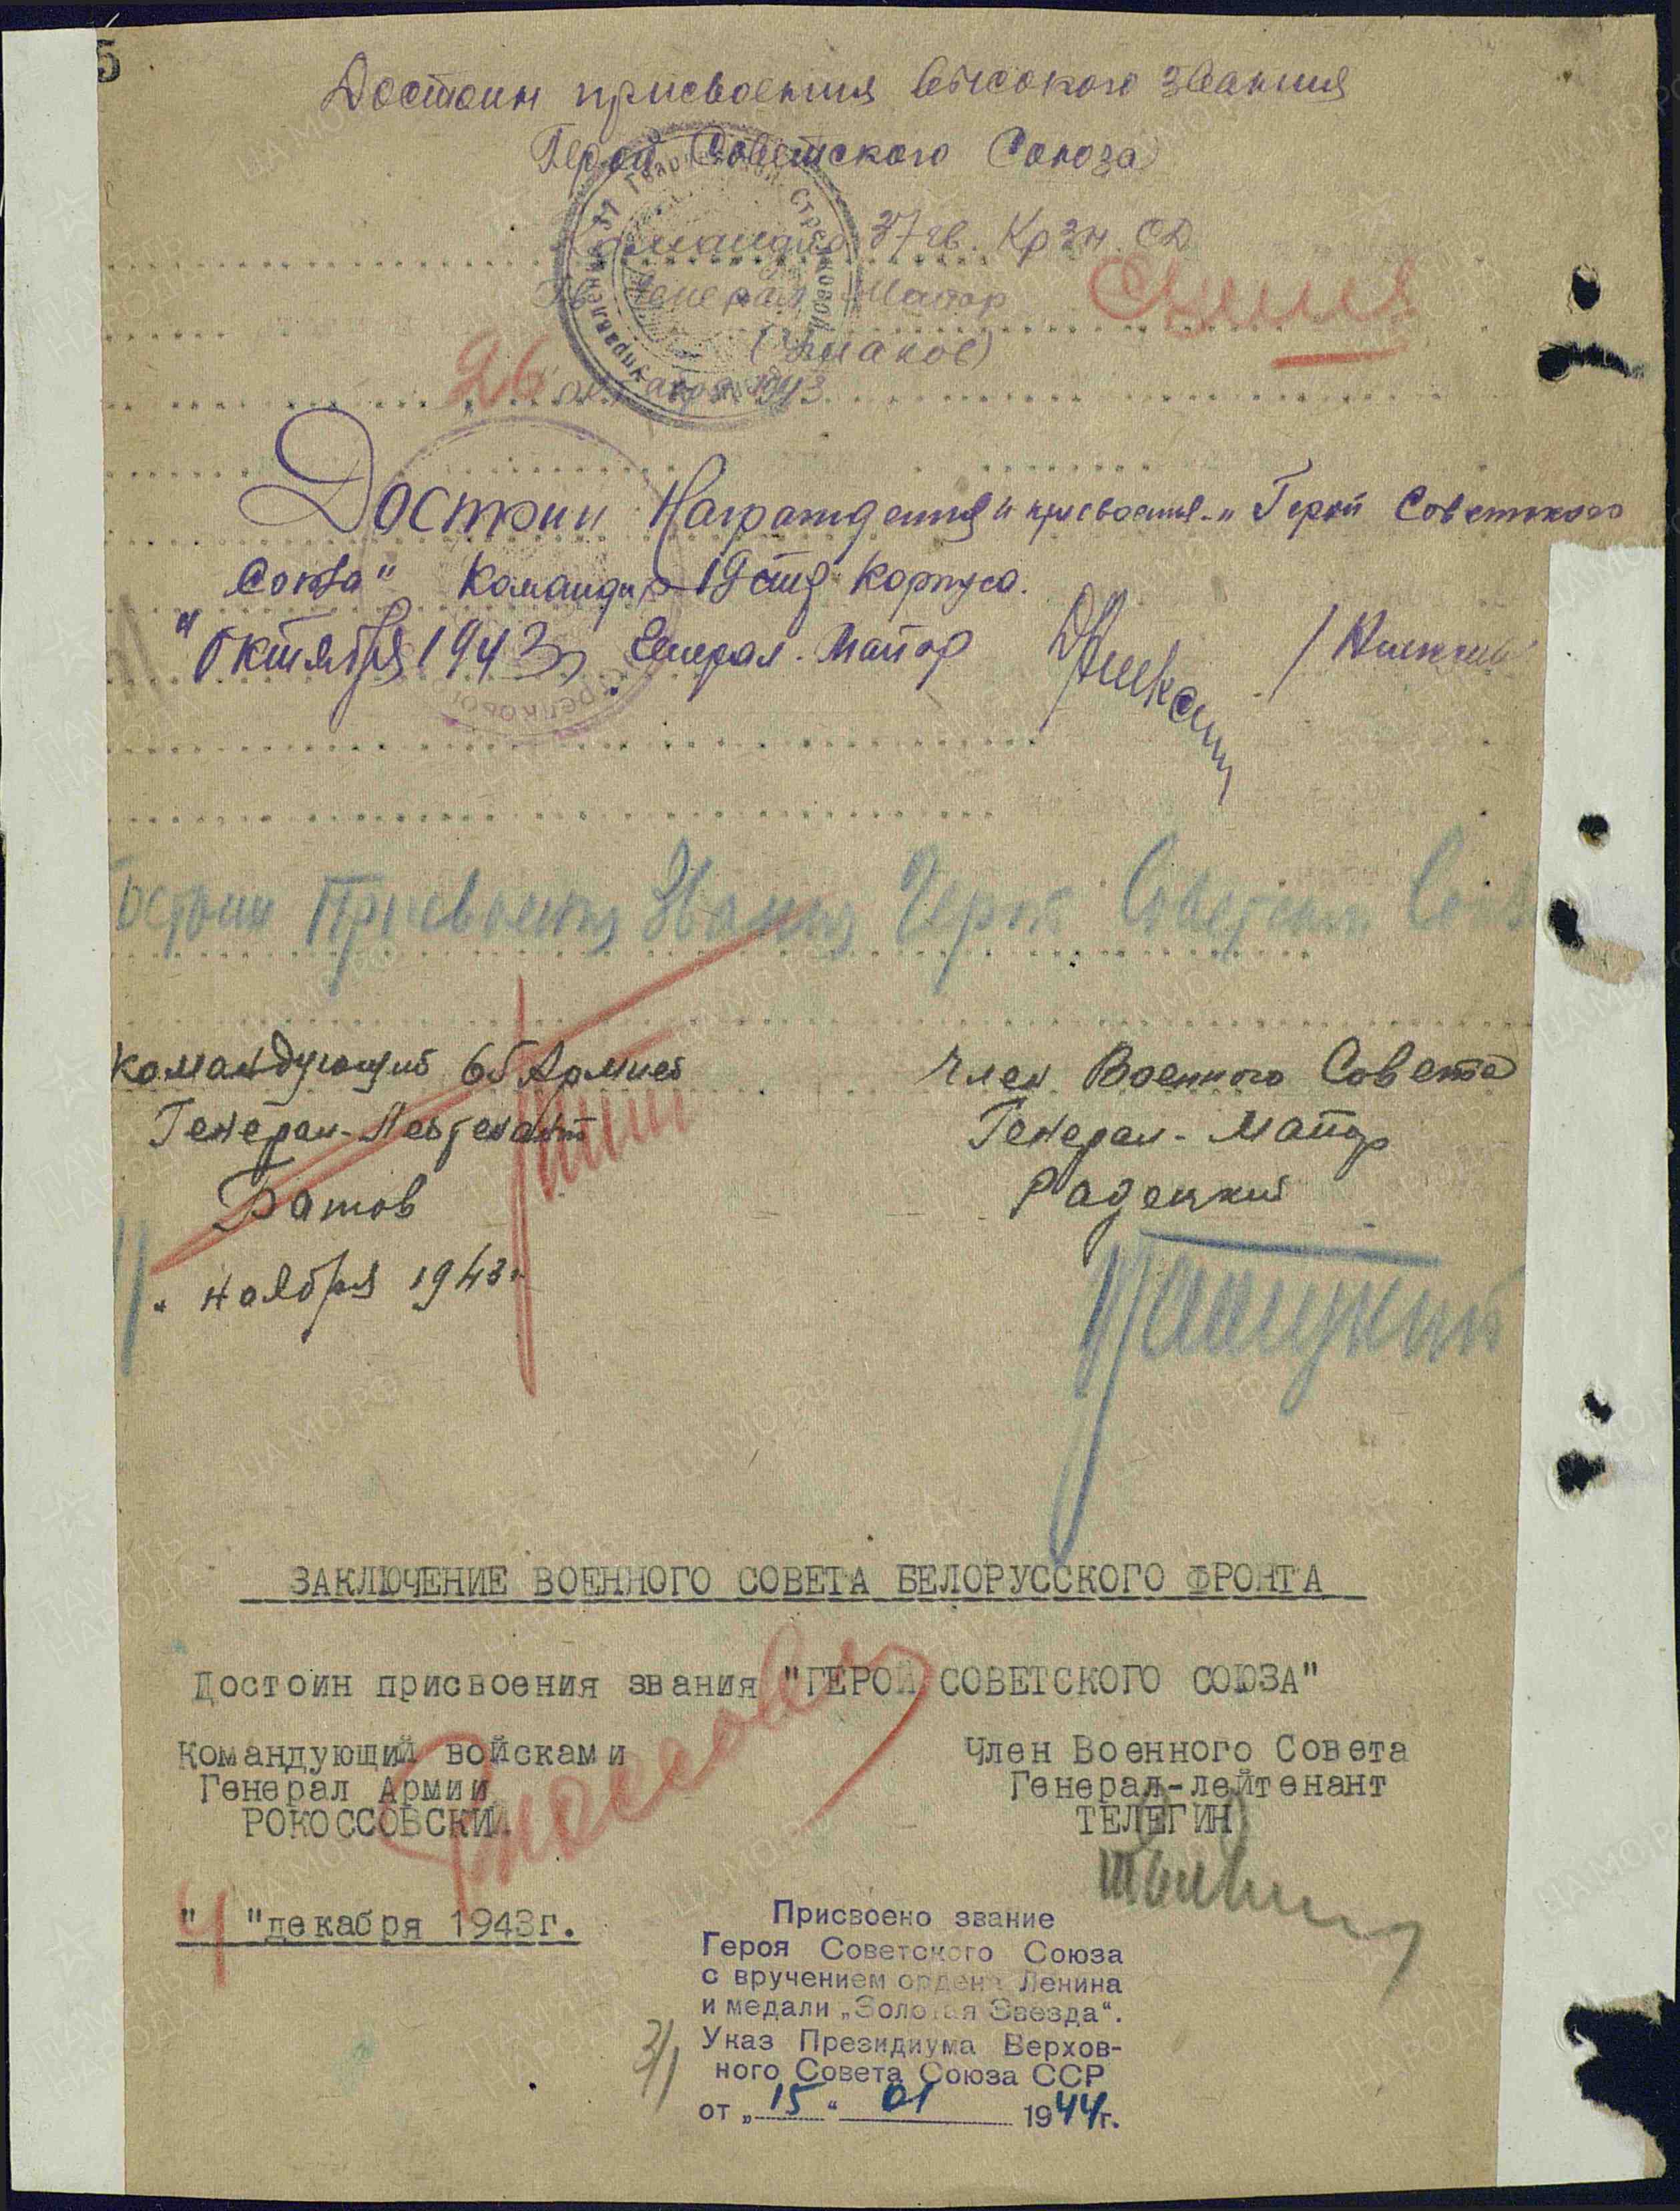 5
Достоин присвоения высокого звания
Герой Советского Союза
Командир 37 гв. Крзн. СД
Гв. Генерал-Майор
(Ушаков)
26 октября 1943.
Достоин Награждения и присвоения „Герой Советского
Союза" Командир 19 стр Корпуса.
" Октября 1943г. Генерал-Майор
Достоин Присвоения Звания Героя Советского Союза
Командующий 65 Армией
Генерал-Лейтенант
Батов
11 " ноября 1943г.
Член Военного Совета
Генерал-Майор
Радецкий
Радецкий
ЗАКЛЮЧЕНИЕ ВОЕННОГО СОВЕТА БЕЛОРУССКОГО ФРОНТА
Достоин присвоения звания "ГЕРОЙ СОВЕТСКОГО СОЮЗА"
Командующий войсками
Генерал Армии
РОКОССОВСКИЙ
Член Военного Совета
Генерал-лейтенант
ТЕЛЕГИН
"4 "декабря 1943г.
Присвоено звание
Героя Советского Союза
с вручением ордена Ленина
и медали „Золотая Звезда".
Указ Президиума Верхов-
ного Совета Союза ССР
от „15" 01 1944г.